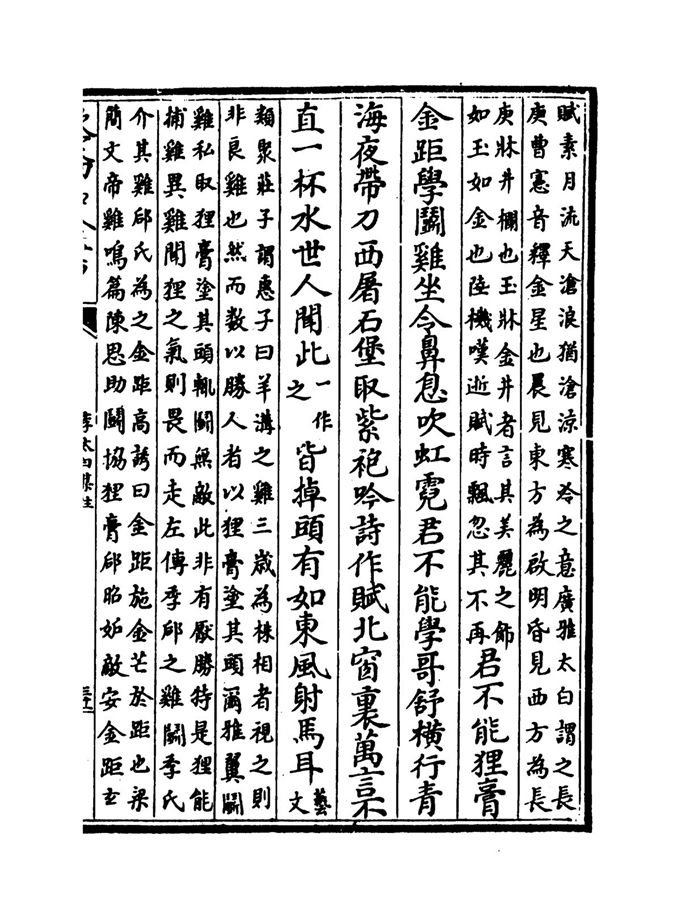 賦素月流天滄浪猶滄涼寒冷之意廣雅太白謂之長
庚曹憲音釋金星也晨見東方為啟明昏見西方為長
庚牀井欄也玉牀金井者言其美麗之飾
如玉如金也陸機嘆逝賦時飄忽其不再
君不能狸膏
金距學鬭雞坐令鼻息吹虹霓君不能學哥舒橫行青
海夜帶刀西屠石堡取紫袍吟詩作賦北窗裏萬言不
直一杯水世人聞此
一作
之
皆掉頭有如東風射馬耳
藝
文
類聚莊子謂惠子曰羊溝之雞三歲為株相者視之則
非良雞也然而数以勝人者以狸膏塗其頭爾雅翼鬭
雞私取狸膏塗其頭輒鬭無敵此非有厭勝特是狸能
捕雞異雞聞狸之氣則畏而走左傳季郈之雞鬭季氏
介其雞郈氏為之金距高誘曰金距施金芒於距也梁
簡文帝雞鳴篇陳思助鬭協狸膏郈昭妬敵安金距玄
李太白集注